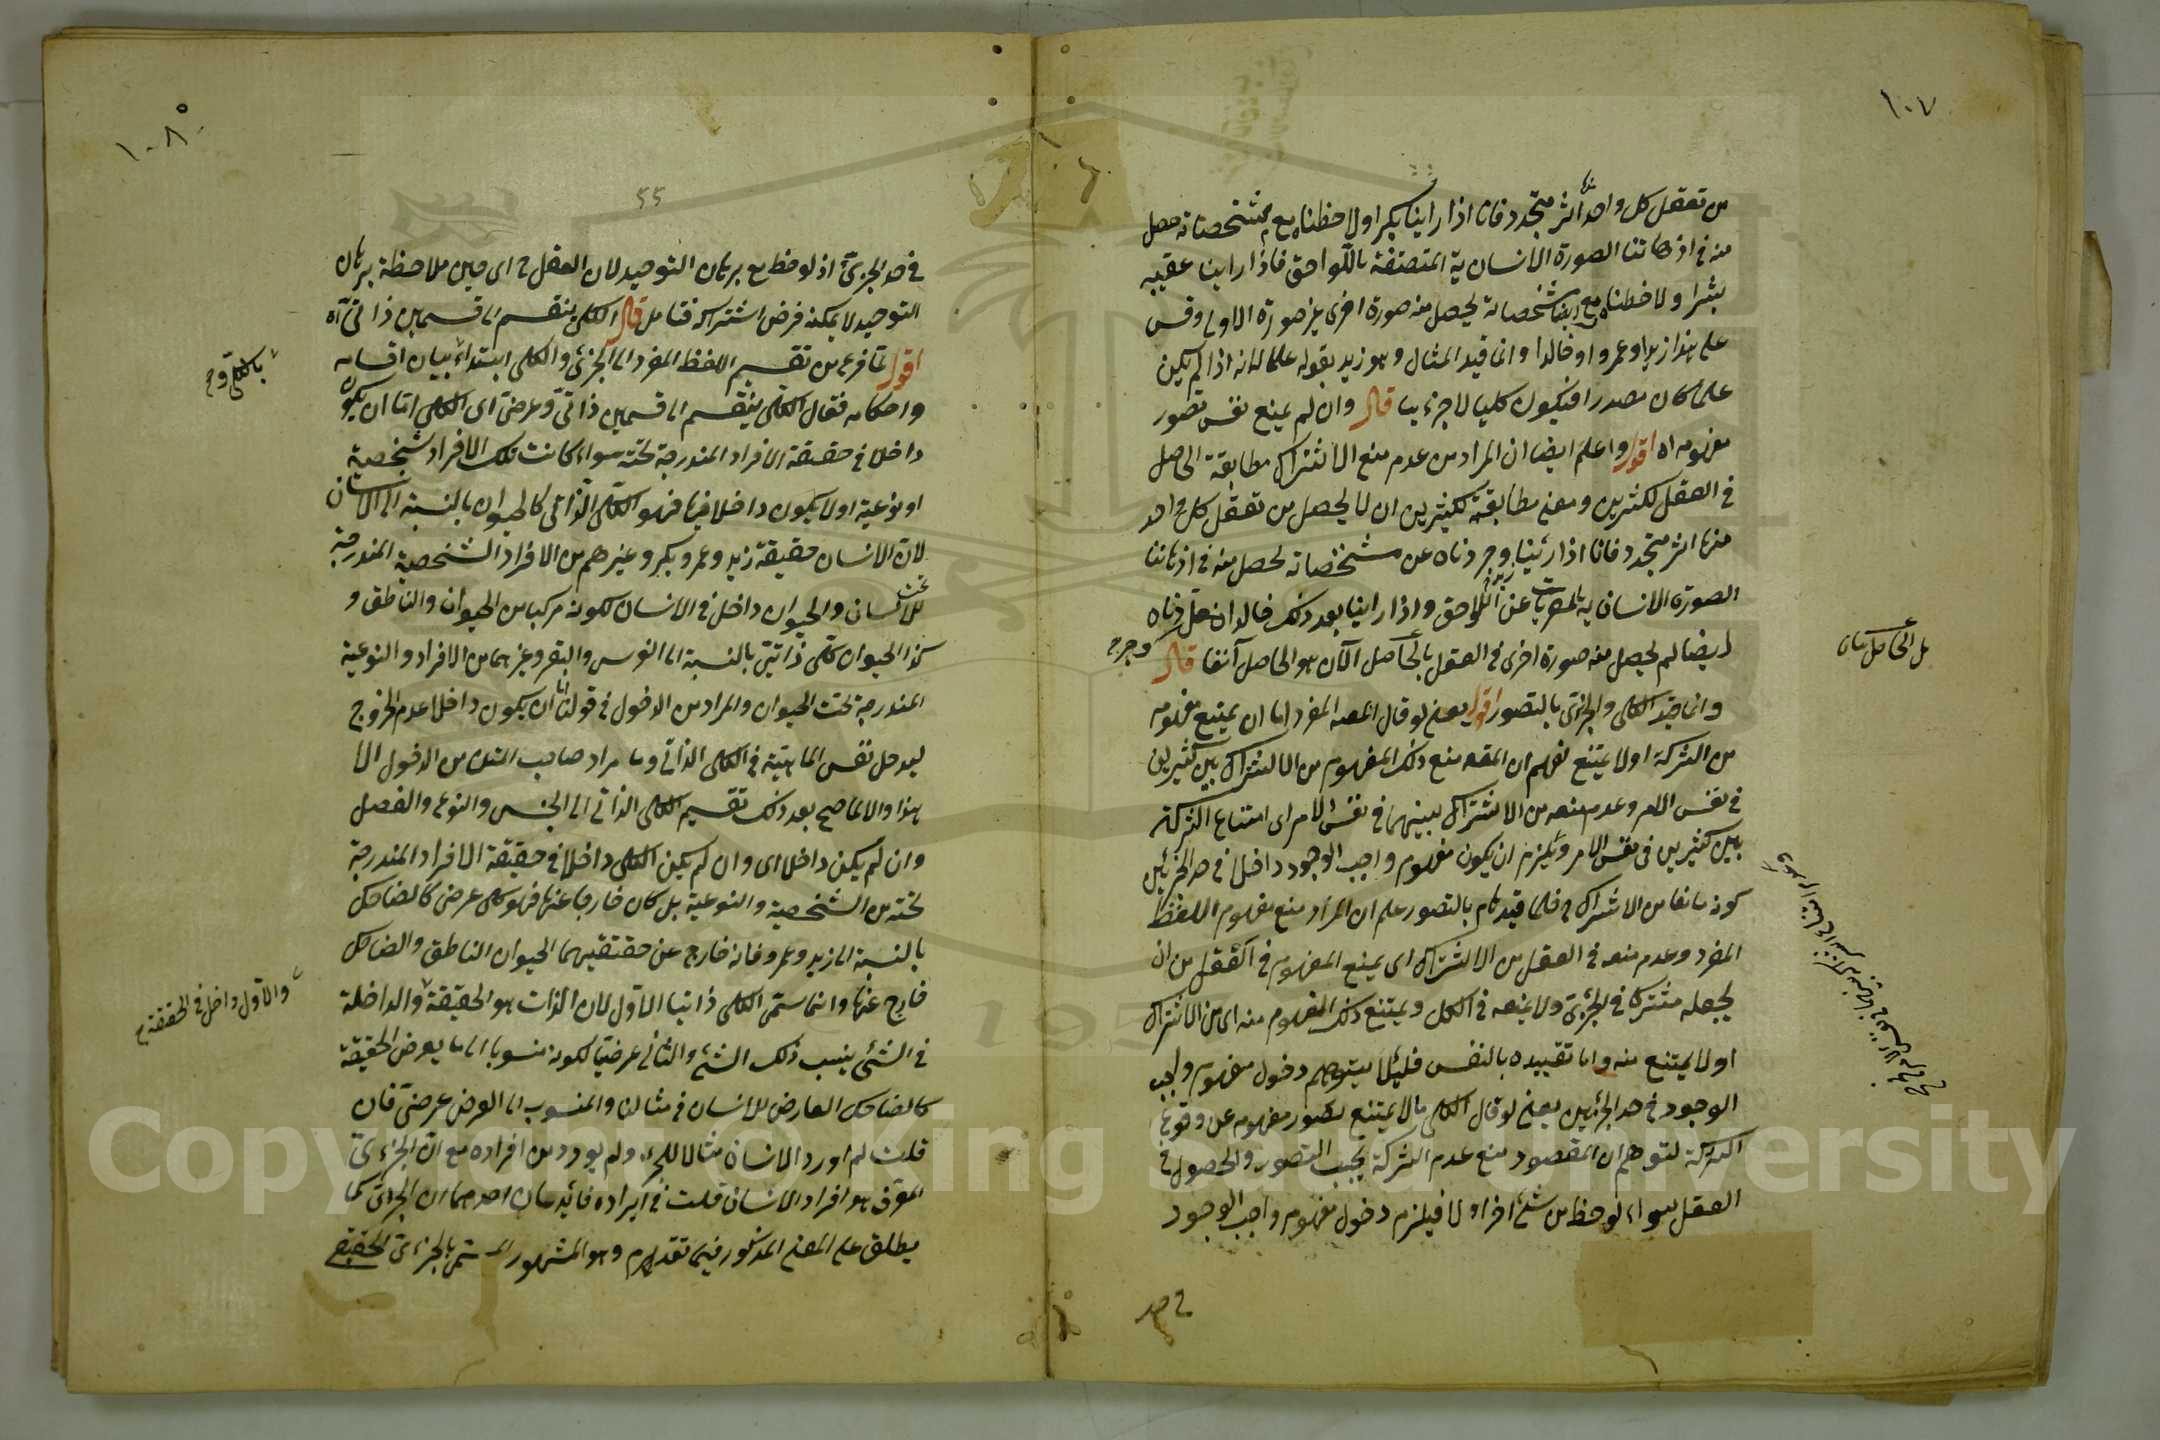 ١٠٧
من تعقل كل واحد أثر متجدد فانا اذا راينا بكرا ولاحظناه مع مشخصاته حصل
منه في اذهاننا الصورة الانسانية المتصفة باللواحق فاذا راينا عقيبه
بشرا ولاحظناه مع مشخصاته يحصل منه صورة اخرى غير صورة الاولى وقس
على هذا زيدا وعمروا وخالدا وانما قيد المثال وهو زيد بقوله علما لانه اذا لم يكن
علما كان مصدرا فيكون كليا لا جزءيا قال وان لم يمنع نفس تصور
مفهومه اه اقول واعلم ايضا ان المراد من عدم منع الاشتراك مطابقة الحاصل
في العقل لكثيرين ومعنى مطابقة لكثيرين ان لا يحصل من تعقل كل واحد
منها اثر متجدد فانا اذا رئينا زيدا وجردناه عن مشخصاته لحصل منه في اذهاننا
الصورة الانسانية المعراة عن اللواحق واذا راينا بعد ذلك خالدا وجردناه
ايضا لم يحصل منه صورة اخرى في العقل بل الحاصل الآن هو الحاصل آنفا قال
وانما قيد الكلى والجزئى بالتصور اقول يعنى لو قال المصـ المفرد اما ان يمنع مفهومه
من الشركة اولا يمتنع لفهم ان المقصـ منع ذلك المفهوم من الاشتراك بين كثيرين
في نفس الامر وعدم منعه من الاشتراك بينهما في نفس الامر اى امتناع الشركة
بين كثيرين في نفس الامر ويلزم ان يكون مفهوم واجب الوجود داخلا في حد الجزئيين
كونه مانعا من الاشتراك فلما قيدهم بالتصور علم ان المراد منع مفهوم اللفظ
المفرد وعدم منعه في العقل من الاشتراك اى يمنع المفهوم في العقل من ان
يجعله مشتركا في الجزئى ولا يمنعه في الكل ويمتنع ذلك المفهوم منه اى من الاشتراك
اولا يمتنع منه واما تقييده بالنفس فلئلا يتوهم دخول مفهوم واجب
الوجود في حد الجزئيين يعنى لو قال الكلى ما لا يمتنع تصور مفهومه عن وقوع
الشركة لتوهم ان المقصود منع عدم الشركة بحسب التصور والحصول في
العقل سواء لوحظ من شئ اخر اولا فيلزم دخول مفهوم واجب الوجود
في حد
بل الحاصل
١٠٨
٥٥
في حد الجزئ اذ لوحظ مع برهان التوحيد لان العقل ح اى حين ملاحظة برهان
التوحيد لا يمكنه فرض اشتراكه فتامل قال الكلى ينقسم الى قسمين ذاتى آه
اقول لما فرغ من تقسيم اللفظ المفرد الى الجزئى والكلى ابتداء ببيان اقسامه
واحكامه فقال الكلى ينقسم الى قسمين ذاتى وعرضى اى الكلى اما ان يكون
داخلا في حقيقة الافراد المندرجة تحته سواء كانت تلك الافراد شخصية
او نوعية اولا يكون داخلا فيها فهو الكلى الذاتى كالحيوان بالنسبة الى الانسان
لان الانسان حقيقة زيد وعمرو وبكر وغيرهم من الافراد الشخصية المندرجة
تحت الانسان والحيوان داخل في الانسان لكونه مركبا من الحيوان والناطق و
كذا الحيوان كلى ذاتى بالنسبة الى الفرس والبقر وغيرهما من الافراد والنوعية
المندرجة تحت الحيوان والمراد من الدخول في قولنا اما ان يكون داخلا عدم الخروج
ليدخل نفس الماهية في الكلى الذاتى وما مراد صاحب المتن من الدخول الا
هذا والا لما صح بعد ذلك تقسيم الكلى الذاتى الى الجنس والنوع والفصل
وان لم يكن داخلا اى وان لم يكن الكلى داخلا في حقيقة الافراد المندرجة
تحته من الشخصية والنوعية بل كان خارجا عنها فهو كلى عرضى كالضاحك
بالنسبة الى زيد وعمرو فانه خارج عن حقيقتيهما الحيوان الناطق والضاحك
خارج عنها وانما سمى الكلى ذاتيا الاول لان الذات هو الحقيقة والداخلة
في الشئ ينسب ذلك الشئ والثانى عرضيا لكونه منسوبا الى ما يعرض الحقيقة
كالضاحك العارض للانسان في مثالنا والمنسوب الى العرض عرضى فان
قلت لم اورد الانسان مثالا للجزء ولم يورد من افراده مع ان الجزءى
المعرف هو افراد الانسان قلت في ايراده فائدتان احدهما ان الجزئى كما
يطلق على المعنى المذكور فيما تقدم وهو المشهور المسمى بالجزءى الحقيقى
والاول داخل في الحقيقة